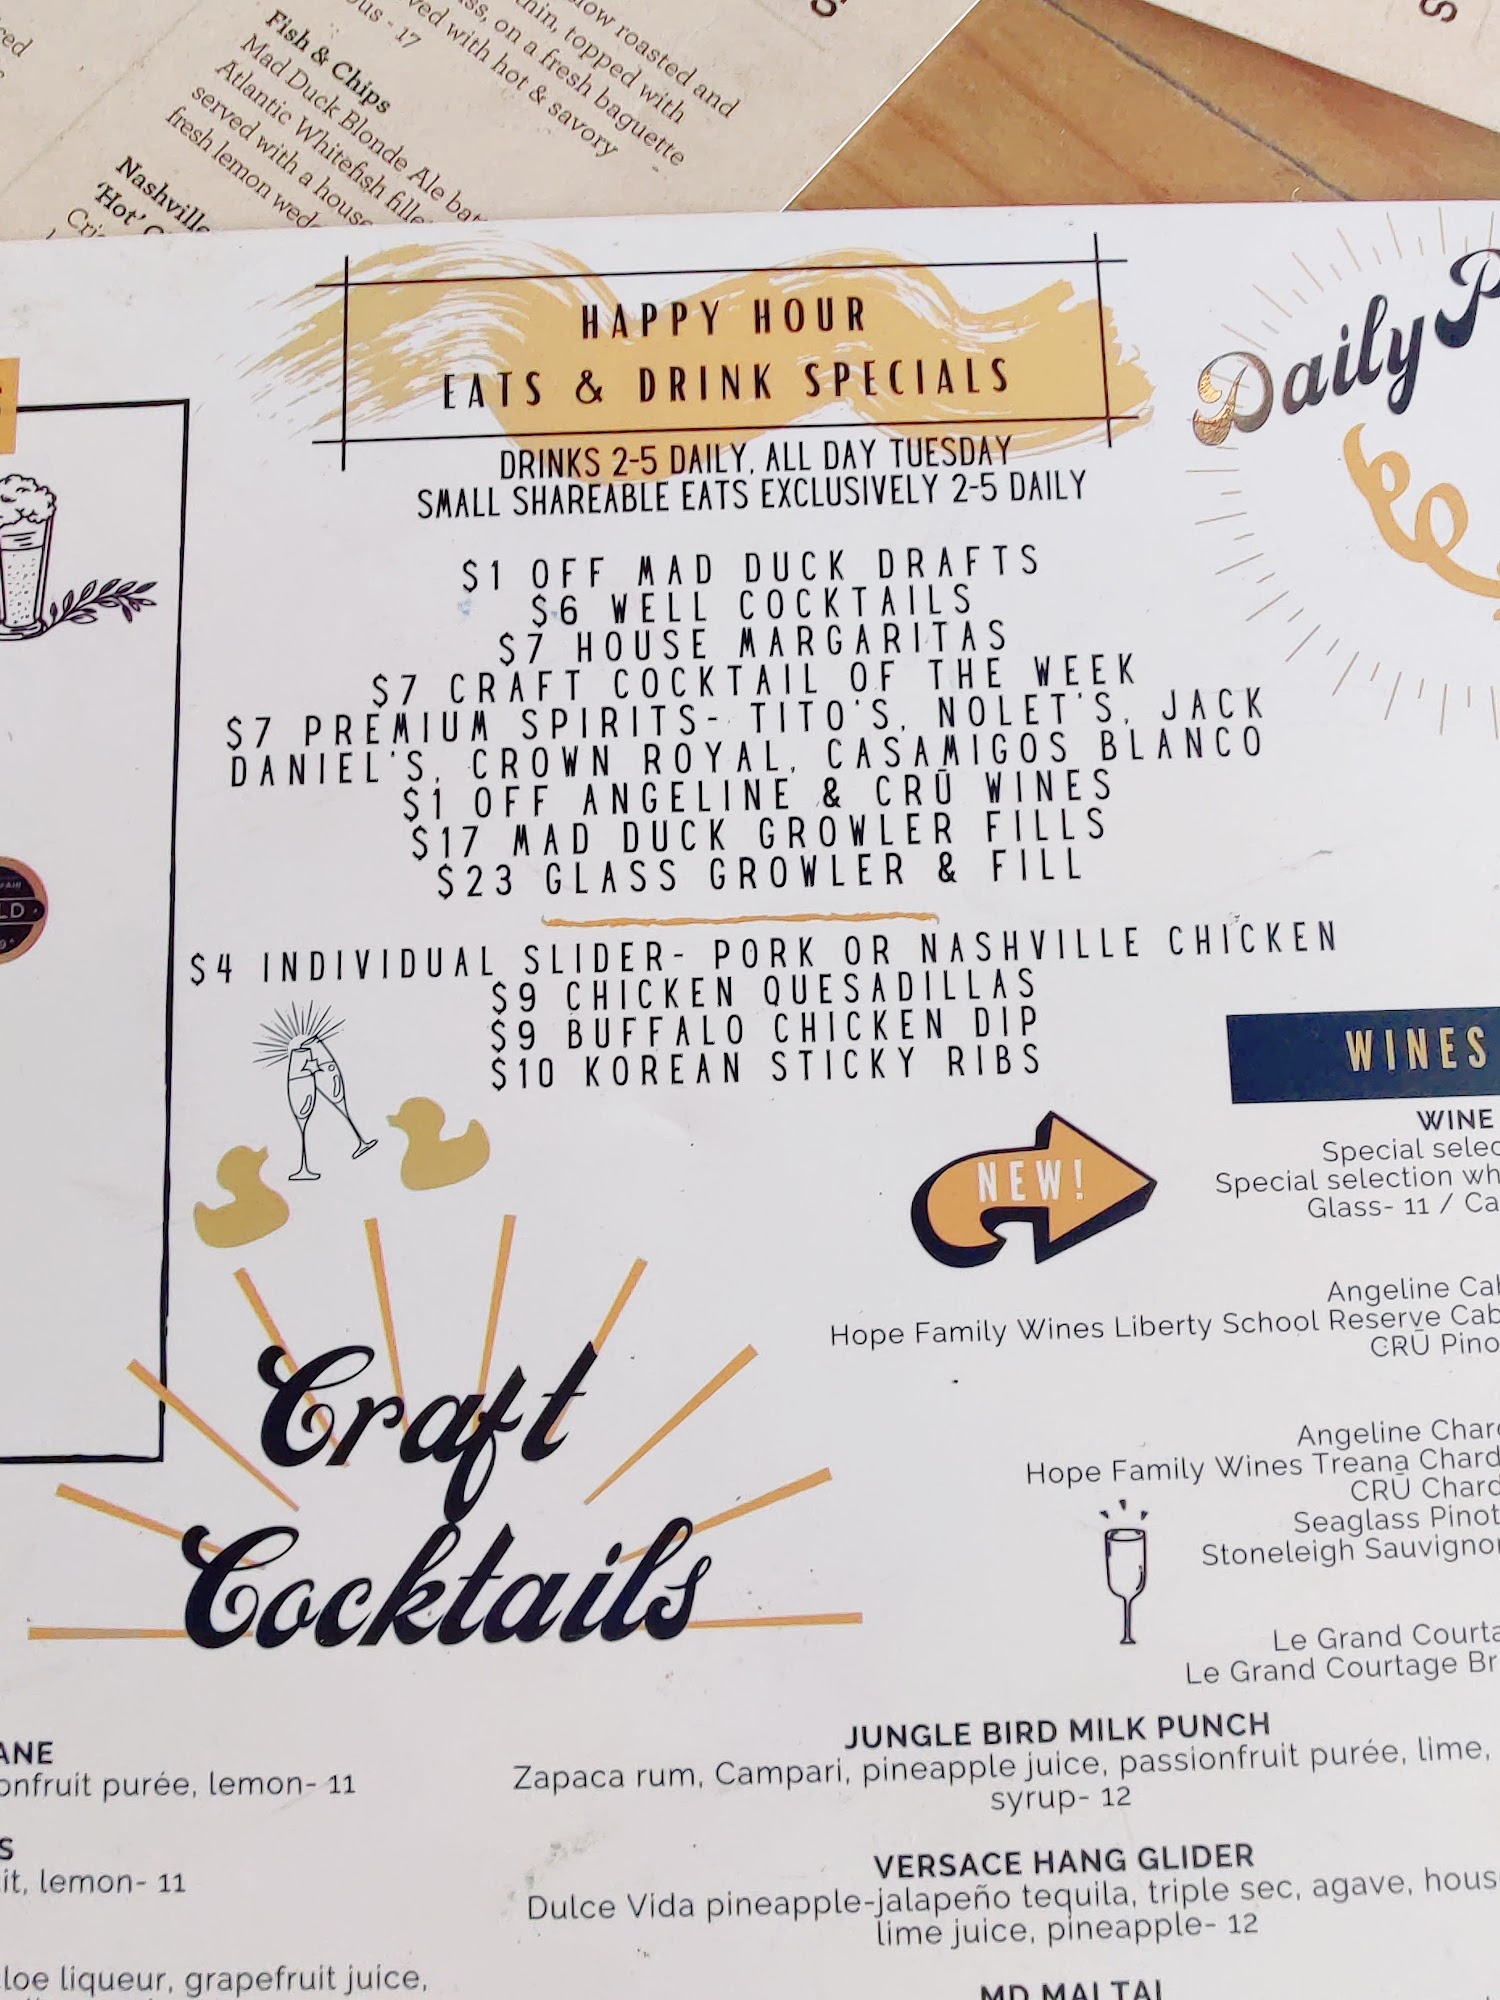 low roasted and
thin, topped with
ss, on a fresh baguette
ved with hot & savory
us - 17
Fish & Chips
Mad Duck Blonde Ale
Atlantic Whitefish
served with a house
fresh lemon
Nashville
'Hot'
HAPPY HOUR
EATS & DRINK SPECIALS
DRINKS 2-5 DAILY, ALL DAY TUESDAY
SMALL SHAREABLE EATS EXCLUSIVELY 2-5 DAILY
$1 OFF MAD DUCK DRAFTS
$6 WELL COCKTAILS
$7 HOUSE MARGARITAS
$7 CRAFT COCKTAIL OF THE WEEK
$7 PREMIUM SPIRITS- TITO'S, NOLET'S, JACK
DANIEL'S, CROWN ROYAL, CASAMIGOS BLANCO
$1 OFF ANGELINE & CRŪ WINES
$17 MAD DUCK GROWLER FILLS
$23 GLASS GROWLER & FILL
$4 INDIVIDUAL SLIDER- PORK OR NASHVILLE CHICKEN
$9 CHICKEN QUESADILLAS
$9 BUFFALO CHICKEN DIP
$10 KOREAN STICKY RIBS
Daily P
WINES
NEW!
WINE
Special selec
Special selection wh
Glass- 11 / Ca
Angeline Cab
Hope Family Wines Liberty School Reserve Cab
CRŪ Pino
Angeline Chard
Hope Family Wines Treana Chard
CRŪ Chard
Seaglass Pinot
Stoneleigh Sauvignon
Le Grand Courta
Le Grand Courtage Br
Craft
Cocktails
ANE
onfruit purée, lemon- 11
S
it, lemon- 11
loe liqueur, grapefruit juice,
JUNGLE BIRD MILK PUNCH
Zapaca rum, Campari, pineapple juice, passionfruit purée, lime,
syrup- 12
VERSACE HANG GLIDER
Dulce Vida pineapple-jalapeño tequila, triple sec, agave, hous
lime juice, pineapple- 12
MD MAI TAI